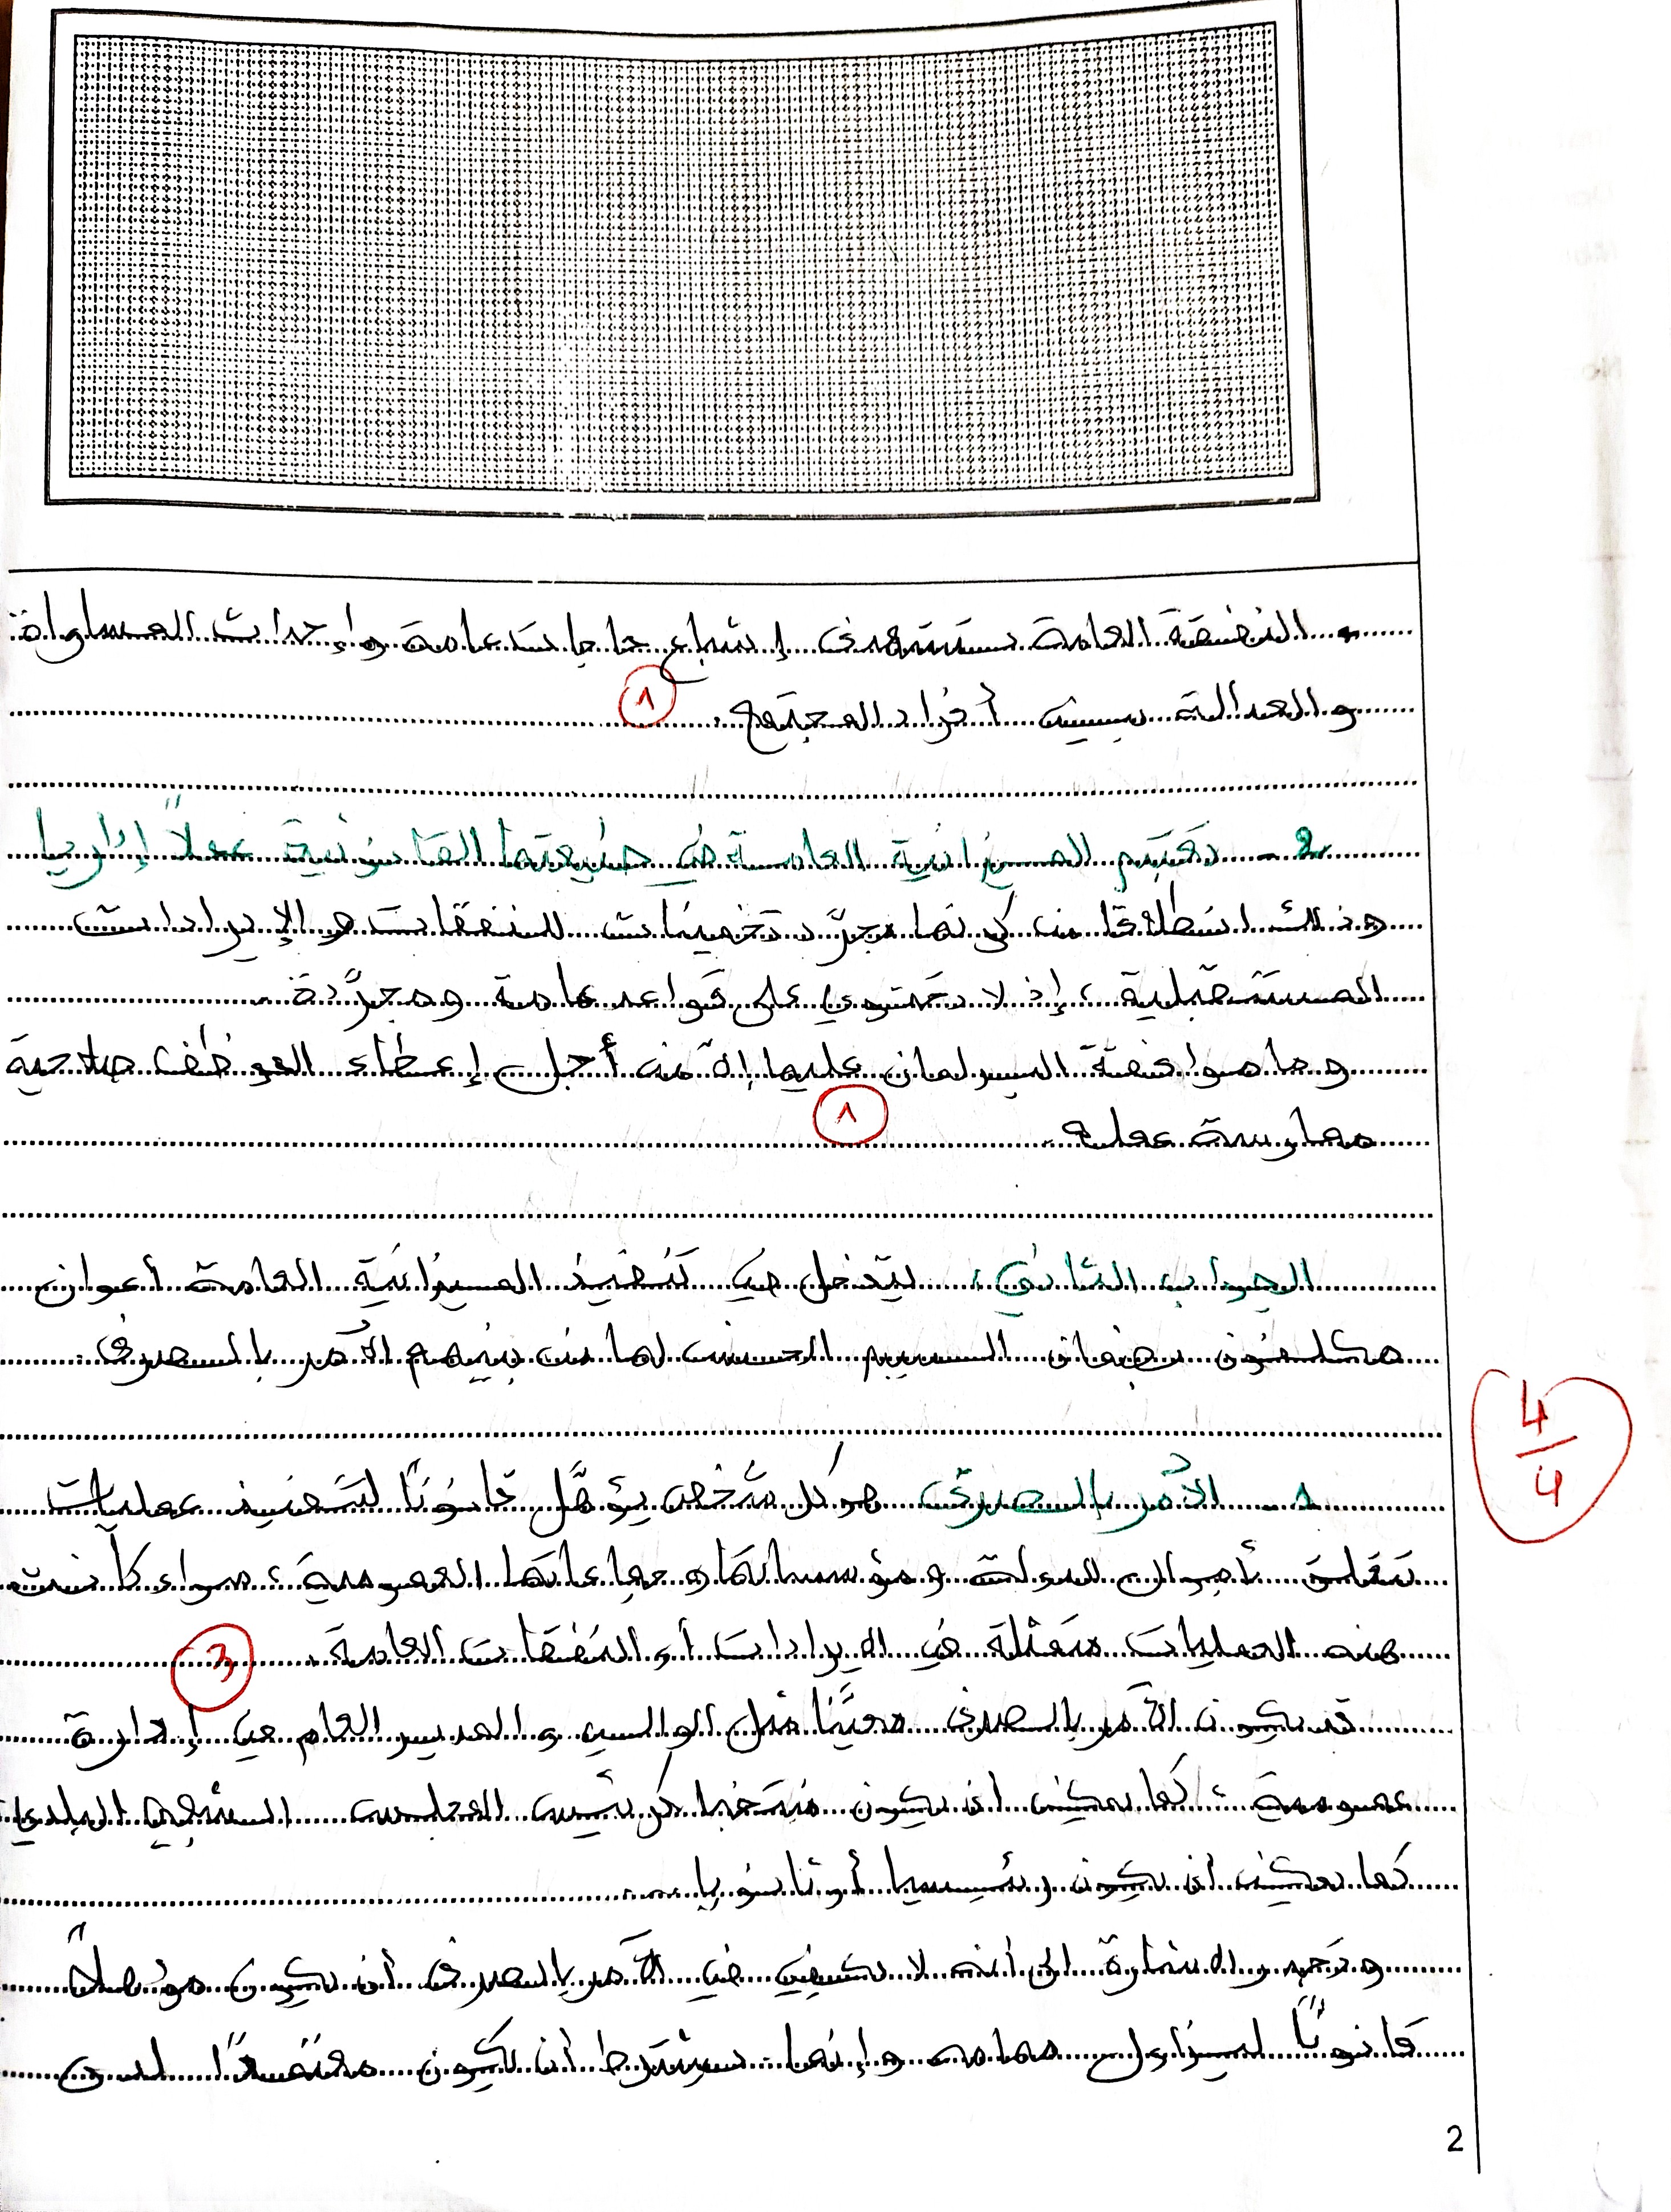 • النفقة العامة تستهدف إشباع حاجات عامة وإحداث المساواة
و العدالة بين أفراد المجتمع.
1
2- تعتبر الميزانية العامة في طبيعتها القانونية عملاً إداريا
وذلك انطلاقا من كونها مجرّد تخمينات للنفقات و الإيرادات
المستقبلية ، إذ لا تحتوي على قواعد عامة ومجرّدة .
وما موافقة البرلمان عليها إلا من أجل إعطاء الموظف صلاحية
ممارسة عمله .
1
الجواب الثاني : يتدخل في تنفيذ الميزانية العامة أعوان
مكلفون بضمان السير الحسن لها من بينهم الآمر بالصرف .
4/4
1- الآمر بالصرف هو كل شخص يؤهَّل قانونًا لتنفيذ عمليات
تتعلق بأموال الدولة و مؤسساتها و جماعاتها العمومية ، سواء كانت
هذه العمليات متمثلة في الإيرادات أو النفقات العامة .
3
قد يكون الآمر بالصرف معيَّنا مثل الوالي و المدير العام في إدارة
عمومية ، كما يمكن ان يكون منتخبا كرئيس المجلس الشعبي البلدي
كما يمكن أن يكون رئيسيا أو ثانويا ...
و تجدر الإشارة الى أنه لا يكفي في الآمر بالصرف أن يكون مؤهلاً
قانونًا ليزاول مهامه و إنما يشترط أن يكون معتمدًا لدى
2